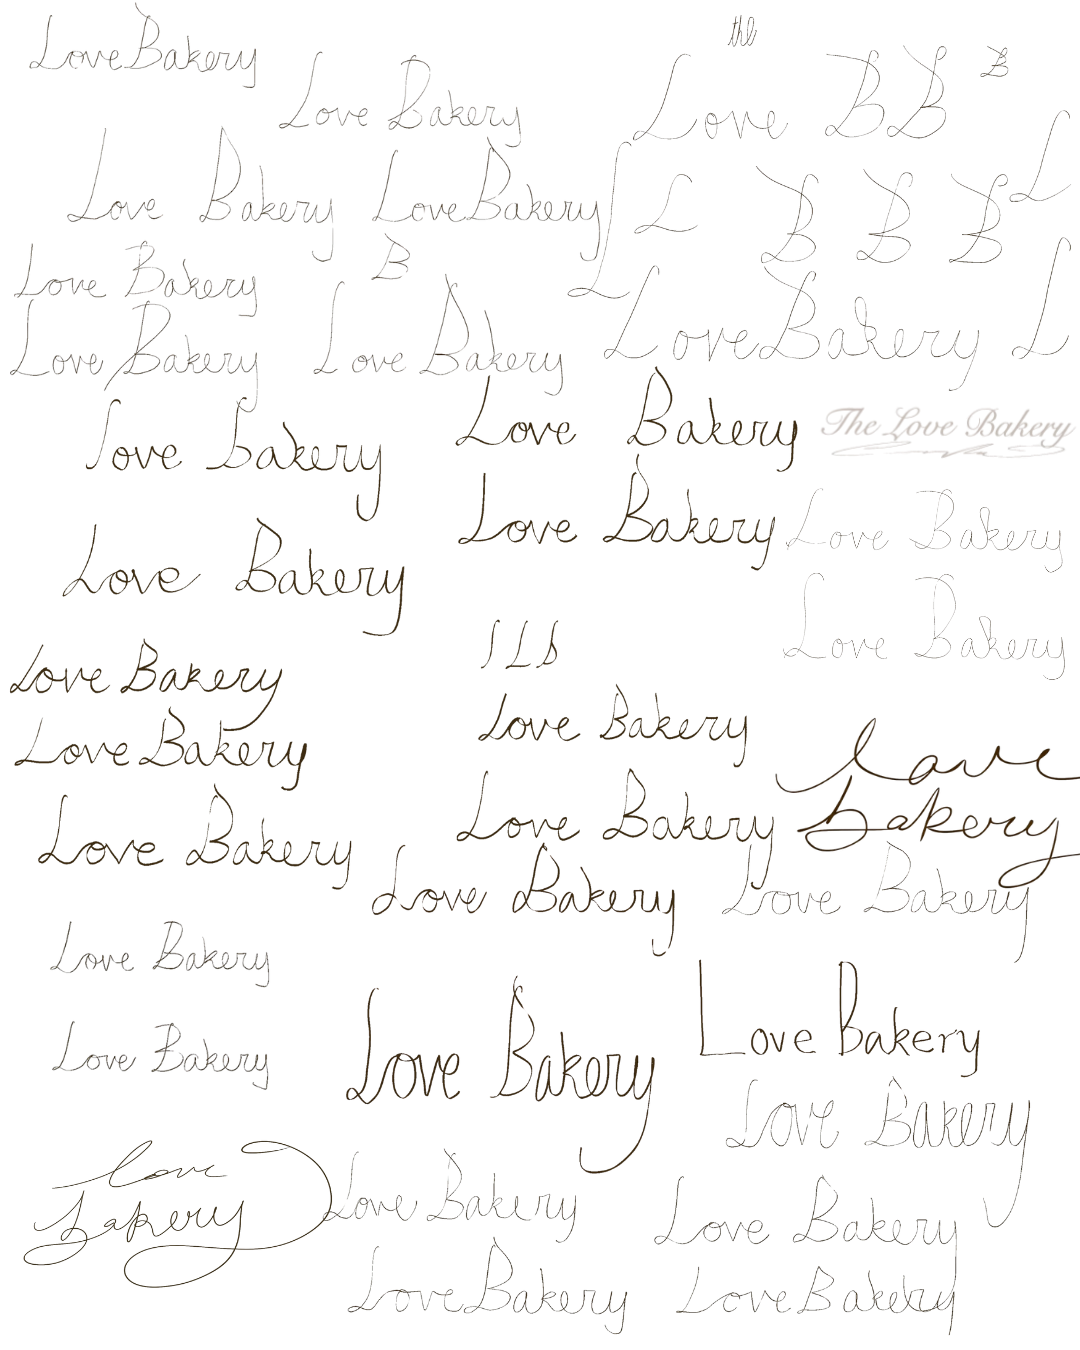 Love Bakery
the
Love Bakery
Love B B
B
L
Love Bakery
Love Bakery
L
L
B B B
Love Bakery
B
Love Bakery
L
Love Bakery
Love Bakery
love bakery
Love Bakery
The Love Bakery
Love Bakery
Love Bakery
Love Bakery
Love Bakery
Love Bakery
Love Bakery
Love Bakery
Love Bakery
love
bakery
Love Bakery
Love Bakery
Love Bakery
Love Bakery
Love Bakery
Love Bakery
Love Bakery
Love Bakery
Love Bakery
love
bakery
Love Bakery
Love Bakery
Love Bakery
Love Bakery